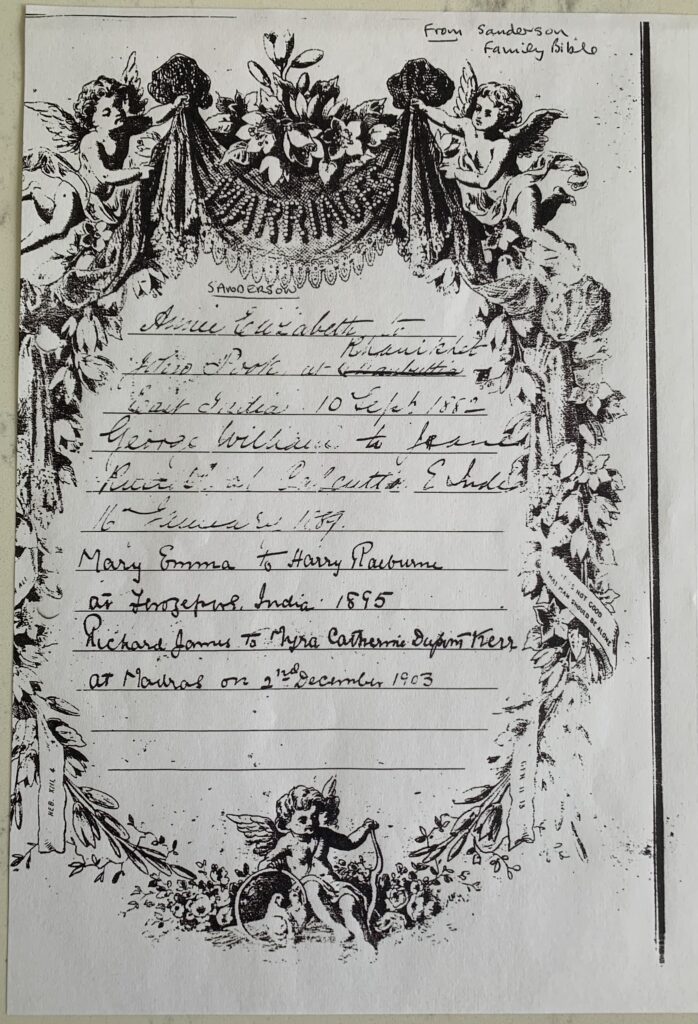 From Sanderson
Family Bible
MARRIAGES
SANDERSON
Annie Elizabeth to
Ranikhet
at
East India 10 Sept 1882
George William to
at Calcutta E. Indi
16 1889.
Mary Emma to Harry Raeburne
at Ferozepore, India 1895
Richard James to Myra Catherine Dupont Kerr
at Madras on 2nd December 1903
IT IS NOT GOOD
THAT MAN SHOULD BE ALONE
HEB. XIII. 4
GEN. II. 18